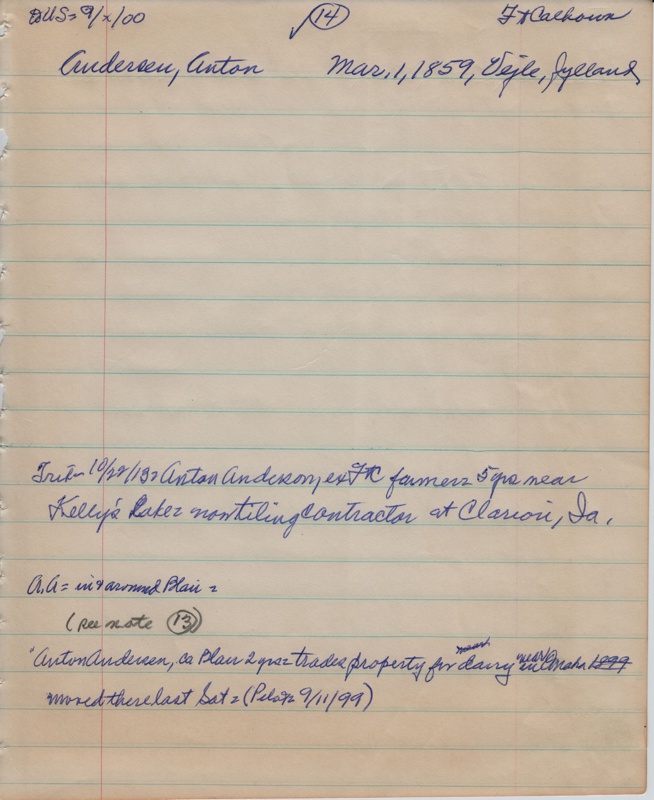 DUS= 9/x/00 ✓ 14 Ft Calhoun
Andersen, Anton Mar, 1, 1859, Vejle, Jylland,
Trib= 10/22/13= Anton Anderson, ex Ft C farmer= 5 yrs near
Kelly's Lake= now tiling contractor at Clarion, Ia.
A.A= in & around Blair =
(see note 13)
"Anton Andersen, ca Blair 2 yrs= trades property for dairy near Omaha 1899
moved there last Sat= (Pilot= 9/11/99)